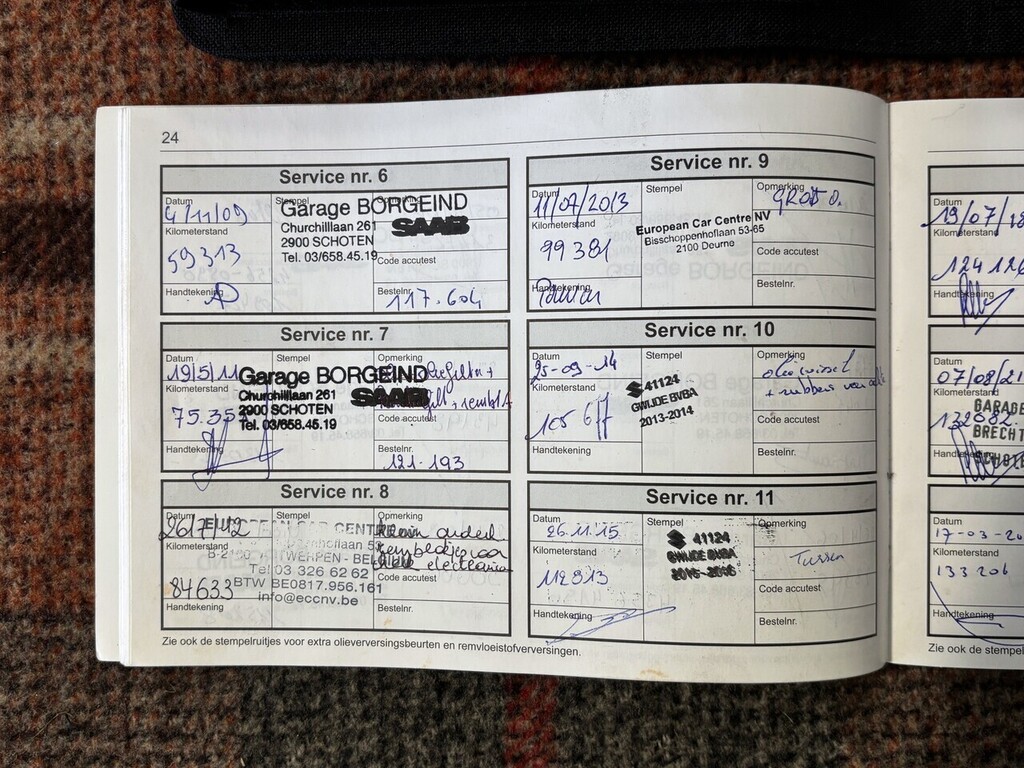 24
Service nr. 6
Datum
4/11/09
Stempel
Garage BORGEIND
Churchilllaan 261
SAAB
2900 SCHOTEN
Tel. 03/658.45.19
Opmerking
Kilometerstand
59313
Code accutest
Handtekening
Bestelnr.
117.604
Service nr. 7
Datum
19/5/11
Stempel
Garage BORGEIND
Churchilllaan 261
SAAB
2900 SCHOTEN
Tel. 03/658.45.19
Opmerking
Kilometerstand
75.353
Code accutest
Handtekening
Bestelnr.
121.193
Service nr. 8
Datum
26/7/12
Stempel
EUROPEAN CAR CENTRE
ANTWERPEN - BELGIUM
Tel 03 326 62 62
BTW BE0817.956.161
info@eccnv.be
Opmerking
Klein onderh
Kilometerstand
84633
Code accutest
Handtekening
Bestelnr.
Service nr. 9
Datum
11/07/2013
Stempel
European Car Centre NV
Bisschoppenhoflaan 53-65
2100 Deurne
Opmerking
GROOT O.
Kilometerstand
99381
Code accutest
Handtekening
Bestelnr.
Service nr. 10
Datum
25-09-14
Stempel
41124
GWIJDE BVBA
2013-2014
Opmerking
Kilometerstand
Code accutest
Handtekening
Bestelnr.
Service nr. 11
Datum
26.11.15
Stempel
41124
GWIJDE BVBA
2015-2016
Opmerking
Tussen
Kilometerstand
112813
Code accutest
Handtekening
Bestelnr.
Zie ook de stempelruitjes voor extra olieverversingsbeurten en remvloeistofverversingen.
Datum
19/07/18
Kilometerstand
124 126
Handtekening
Datum
07/08/21
Kilometerstand
132882
GARAGE
BRECHT
Handtekening
Datum
17-03-20
Kilometerstand
133206
Handtekening
Zie ook de stempel